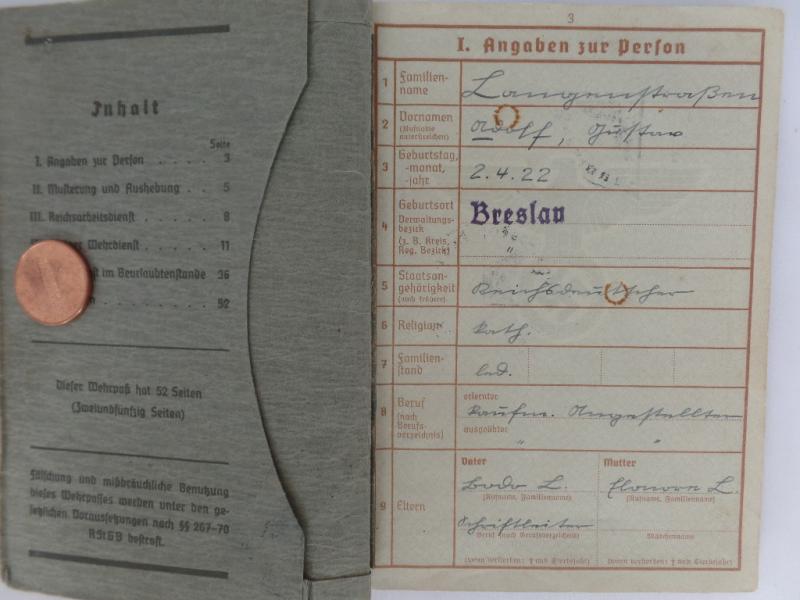 Inhalt
Seite
I. Angaben zur Person . . . . . 3
II. Musterung und Aushebung . . 5
III. Reichsarbeitsdienst . . . . . 8
Wehrdienst . . . 11
im Beurlaubtenstande 36
52
Dieser Wehrpaß hat 52 Seiten
(Zweiundfünfzig Seiten)
Fälschung und mißbräuchliche Benutzung
dieses Wehrpasses werden unter den ge-
setzlichen Voraussetzungen nach §§ 267–70
RStGB bestraft.
3
I. Angaben zur Person
1 Familien-
name
Langenstraßen
2 Vornamen
(Rufname
unterstreichen)
Adolf, Gustav
3 Geburtstag,
-monat,
-jahr
2.4.22
4 Geburtsort
Verwaltungs-
bezirk
(z. B. Kreis,
Reg. Bezirk)
Breslau
"
5 Staatsan-
gehörigkeit
(auch frühere)
Reichsdeutscher
6 Religion
kath.
7 Familien-
stand
led.
8 Beruf
(nach
Berufs-
verzeichnis)
erlernter
kaufm. Angestellter
ausgeübter
" "
9 Eltern
Vater
Bodo L.
(Rufname, Familienname)
Schriftleiter
Beruf (nach Berufsverzeichnis)
(wenn verstorben: † und Sterbejahr)
Mutter
Elonore L.
(Rufname, Familienname)
Mädchenname
(wenn verstorben: † und Sterbejahr)